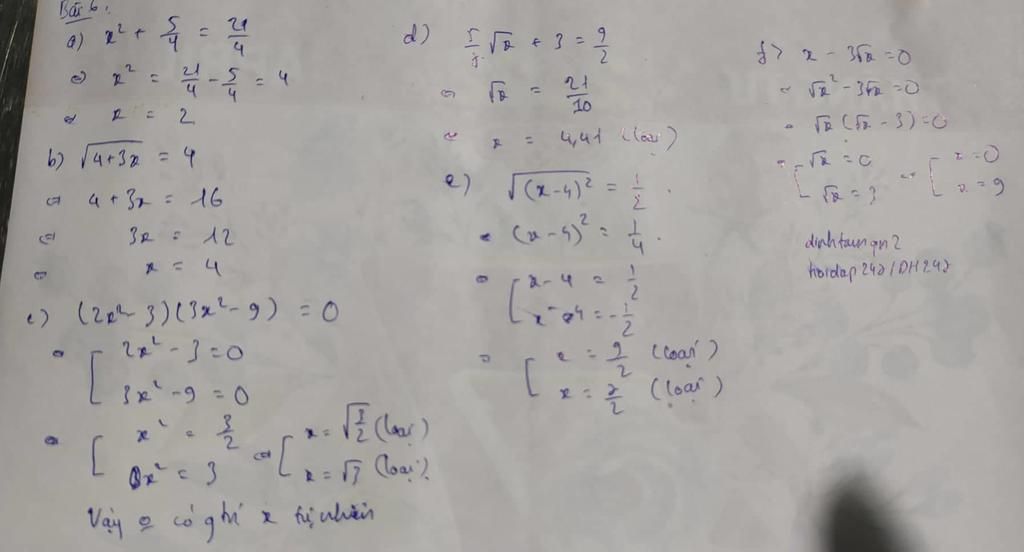 Bài 6.
a) x² + 5/4 = 21/4
⇔ x² = 21/4 - 5/4 = 4
⇔ x = 2
b) √(4+3x) = 4
⇔ 4+3x = 16
⇔ 3x = 12
⇔ x = 4
c) (2x²-3)(3x²-9) = 0
⇔ [ 2x² - 3 = 0
3x² - 9 = 0
⇔ [ x² = 3/2 ⇔ [ x = √(3/2) (loại)
x² = 3 x = √3 (loại)
Vậy ko có gtrí x tự nhiên
d) √x + 3 = 9/2
⇔ √x = 21/10
⇔ x = 4,41 (loại)
e) √((x-4)²) = 1/2
⇔ (x-4)² = 1/4
⇔ [ x-4 = 1/2
x-4 = -1/2
⇔ [ x = 9/2 (loại)
x = 7/2 (loại)
f) x - 3√x = 0
⇔ √x² - 3√x = 0
⇔ √x (√x - 3) = 0
⇔ [ √x = 0 ⇔ [ x = 0
√x = 3 x = 9
hoidap247/DH247